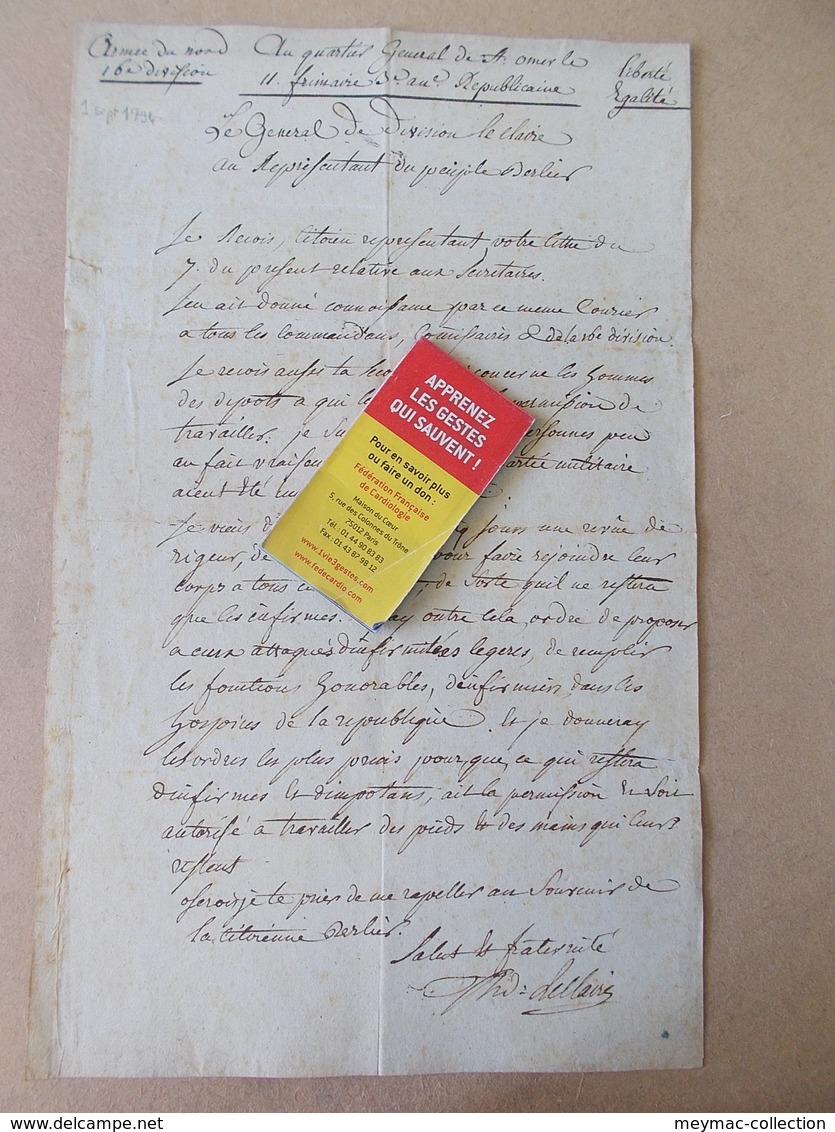 Armée du nord
16e division
Au quartier General de St. omer le
11. frimaire 3e. anée Republicaine
liberté
Egalité
1 sept 1794
Le General de Division leclaire
au Représentant du peuple Berlier
Je recois, Citoien representant votre lettre du
7. du present relative aux Secretaires.
J'en ait donné connoissance par ce meme Courier
a tous les Commandans, Comissaires & de la 16e division.
Je recois aussi ta concerne les hommes
des depots a qui permission de
travailler. Je personnes peu
au fait partie militaire
aient été
Je viens jours une revue de
rigeur, de pour faire rejoindre leur
corps a tous de Sorte qu'il ne restera
que les infirmes. outre cela ordre de proposer
a ceux attaqués d'infirmitées legeres, de remplir
les fonctions honorables, d'infirmiers dans les
hospices de la republique. Et je donneray
les ordres les plus précis pour que ce qui restera
d'infirmes et d'impotans, ait la permission et soit
autorisé a travailler des pieds et des mains qui leurs
restent
oserois je te prier de me rapeller au Souvenir de
la citoienne Berlier.
Salut et fraternité
Thd: leclaire
APPRENEZ
LES GESTES
QUI SAUVENT !
Pour en savoir plus
ou faire un don :
Fédération Française
de Cardiologie
Maison du Cœur
5, rue des Colonnes du Trône
75012 Paris
Tél : 01 44 90 83 83
Fax : 01 43 87 98 12
www.1vie3gestes.com
www.fedecardio.com
meymac-collection